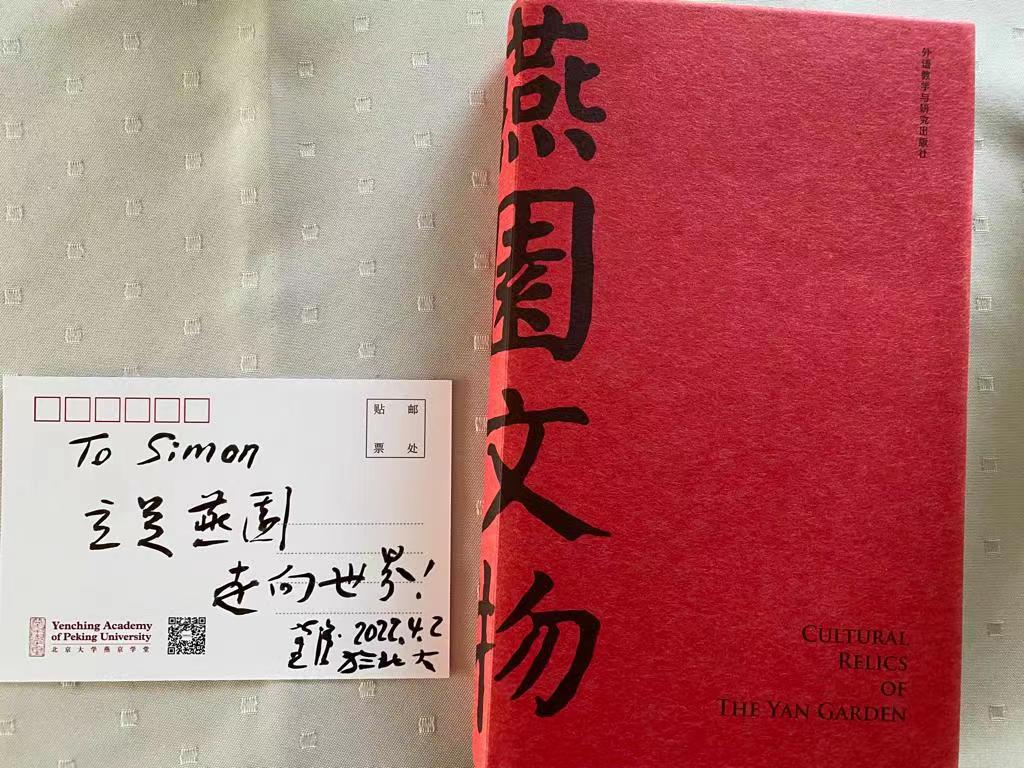 贴 邮
票 处
To Simon
立足燕园
走向世界!
董强. 2022.4.2
北大
Yenching Academy
of Peking University
北京大学燕京学堂
燕園文物
外语教学与研究出版社
CULTURAL
RELICS
OF
THE YAN GARDEN